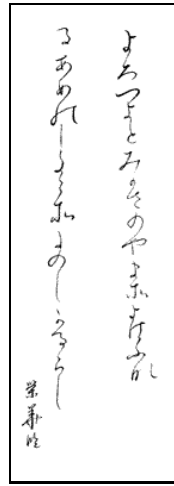 よろつよとみかさのやまそよはふな
るあめのしたこそたのしかるらし